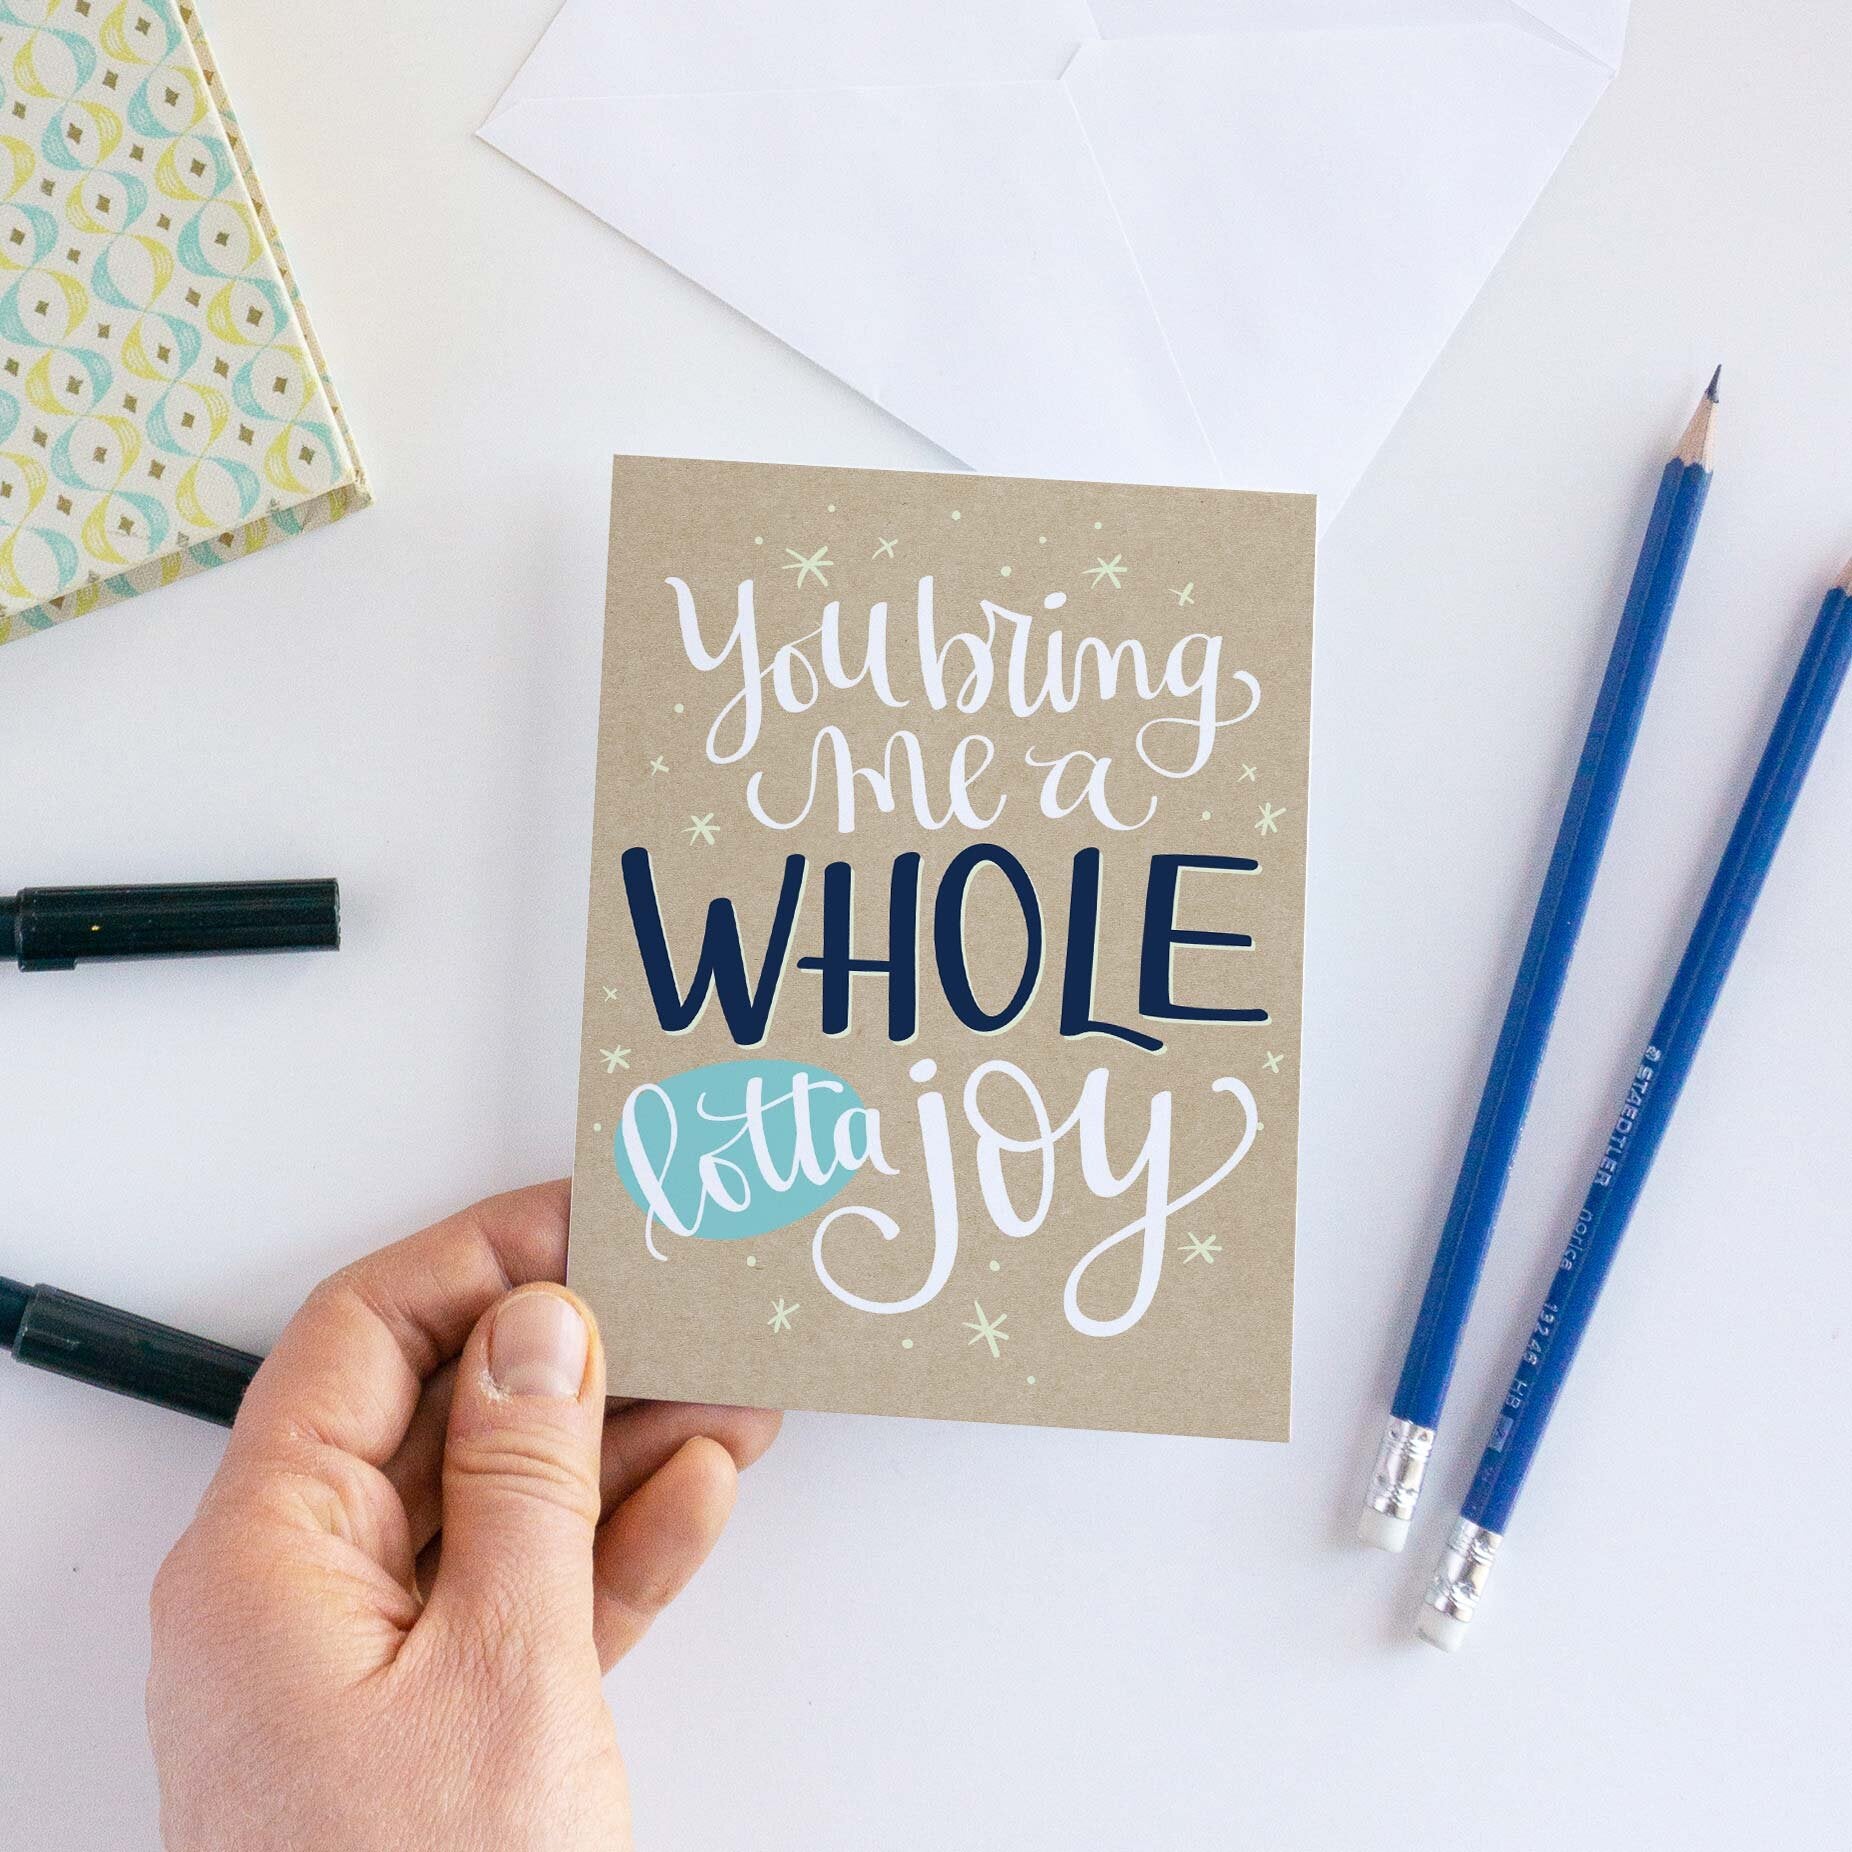 You bring
me a
WHOLE
lotta joy
STAEDTLER norica 132 46 HB